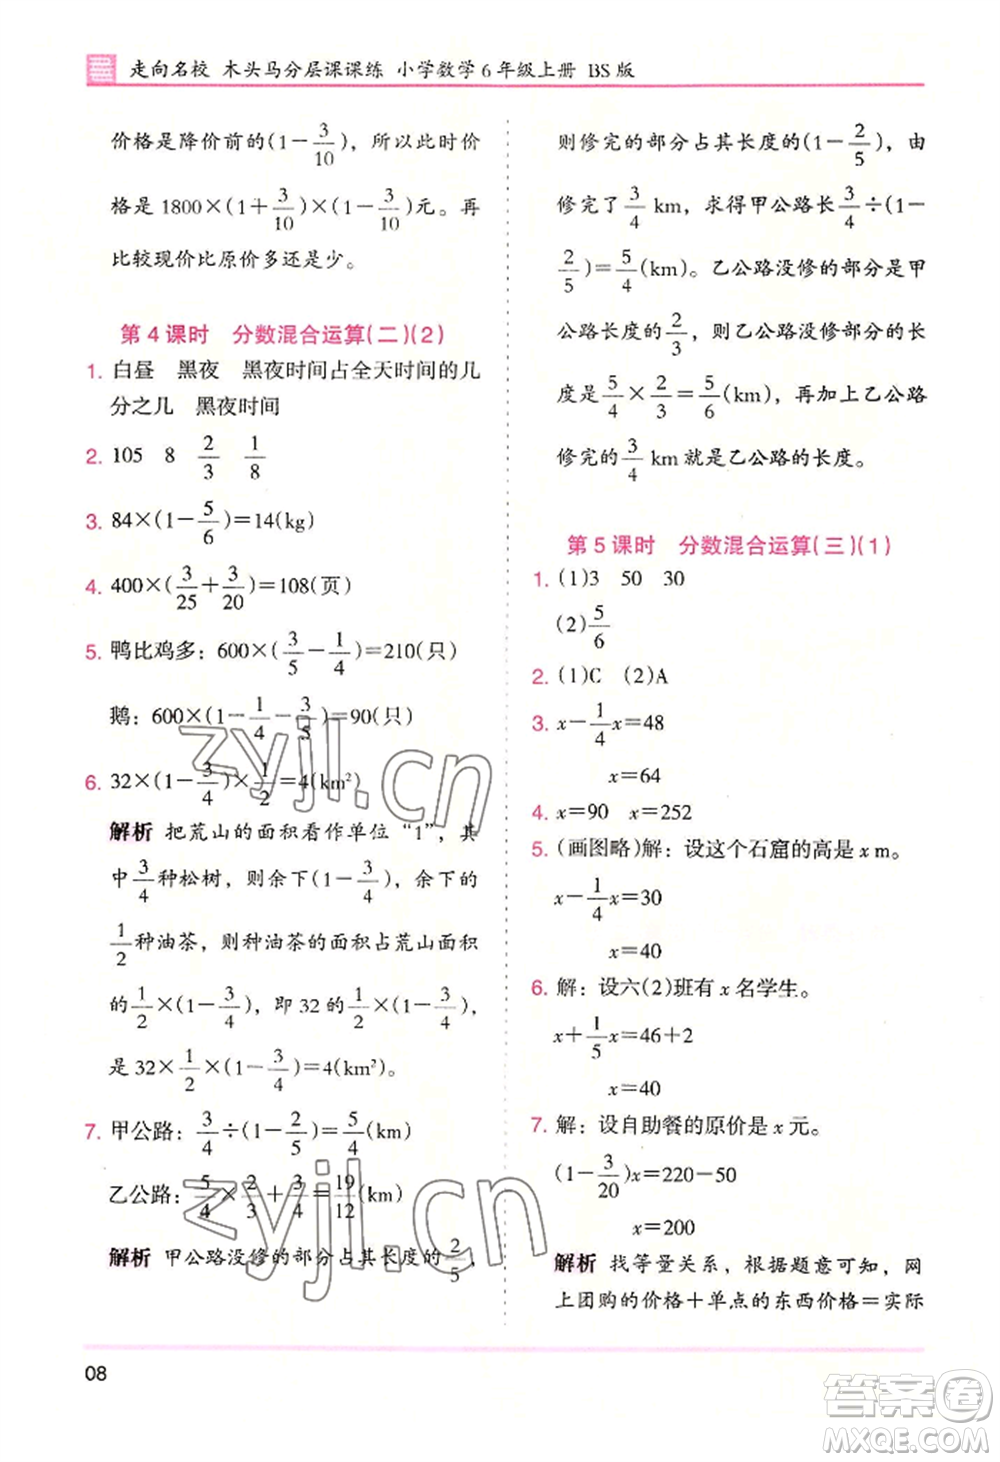 走向名校 木头马分层课课练 小学数学6年级上册 BS版
价格是降价前的(1－3/10)，所以此时价
格是1800×(1＋3/10)×(1－3/10)元。再
比较现价比原价多还是少。
第4课时 分数混合运算(二)(2)
1. 白昼 黑夜 黑夜时间占全天时间的几
分之几 黑夜时间
2. 105 8 2/3 1/8
3. 84×(1－5/6)＝14(kg)
4. 400×(3/25＋3/20)＝108(页)
5. 鸭比鸡多：600×(3/5－1/4)＝210(只)
鹅：600×(1－1/4－3/5)＝90(只)
6. 32×(1－3/4)×1/2＝4(km²)
解析 把荒山的面积看作单位“1”，其
中3/4种松树，则余下(1－3/4)，余下的
1/2种油茶，则种油茶的面积占荒山面积
的1/2×(1－3/4)，即32的1/2×(1－3/4)，
是32×1/2×(1－3/4)＝4(km²)。
7. 甲公路：3/4÷(1－2/5)＝5/4(km)
乙公路：5/4×2/3＋3/4＝19/12(km)
解析 甲公路没修的部分占其长度的2/5，
则修完的部分占其长度的(1－2/5)，由
修完了3/4 km，求得甲公路长3/4÷(1－
2/5)＝5/4(km)。乙公路没修的部分是甲
公路长度的2/3，则乙公路没修的部分的长
度是5/4×2/3＝5/6(km)，再加上乙公路
修完的3/4 km就是乙公路的长度。
第5课时 分数混合运算(三)(1)
1. (1)3 50 30
(2)5/6
2. (1)C (2)A
3. x－1/4x＝48
x＝64
4. x＝90 x＝252
5. (画图略)解：设这个石窟的高是x m。
x－1/4x＝30
x＝40
6. 解：设六(2)班有x名学生。
x＋1/5x＝46＋2
x＝40
7. 解：设自助餐的原价是x元。
(1－3/20)x＝220－50
x＝200
解析 找等量关系，根据题意可知，网
上团购的价格＋单点的东西价格＝实际
08
zyjl.cn
zyjl.cn
答案卷
MXQE.COM